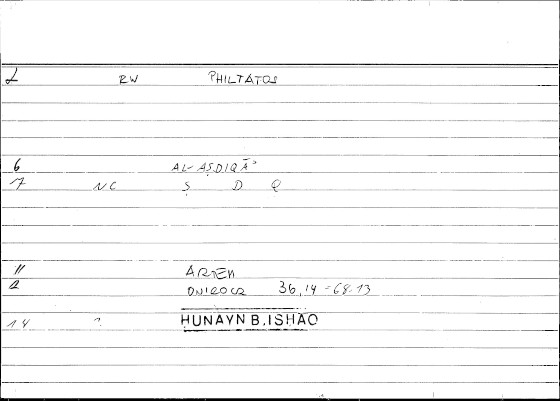 2 RW PHILTATOS
6 AL-AṢDIQĀʾ
7 NC Ṣ D Q
11 ARTEM
12 ONIROCR 36,14 = 68.13
14 ? HUNAYN B.ISHAQ